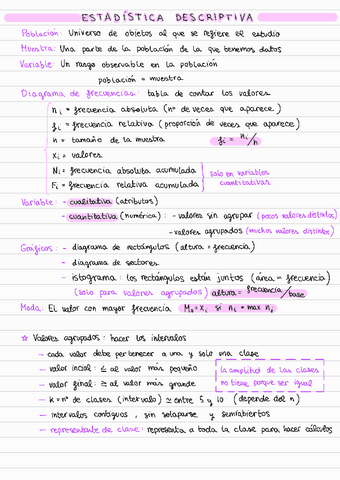 ESTADÍSTICA DESCRIPTIVA
Población: Universo de objetos al que se refiere el estudio
Muestra: Una parte de la población de la que tenemos datos
Variable: Un rasgo observable en la población
población ≠ muestra
Diagrama de frecuencias: tabla de contar los valores
ni = frecuencia absoluta (nº de veces que aparece)
fi = frecuencia relativa (proporción de veces que aparece)
n = tamaño de la muestra fi = ni/n
xi = valores
Ni = frecuencia absoluta acumulada
Fi = frecuencia relativa acumulada
solo en variables cuantitativas
Variable: - cualitativa (atributos)
- cuantitativa (numérica): - valores sin agrupar (pocos valores distintos)
- valores agrupados (muchos valores distintos)
Gráficos: - diagrama de rectángulos (altura = frecuencia)
- diagrama de sectores
- istograma: los rectángulos están juntos (área = frecuencia)
(solo para valores agrupados) altura = frecuencia/base
Moda: El valor con mayor frecuencia Mo = xi si ni = max ni
☆ Valores agrupados: hacer los intervalos
- cada valor debe pertenecer a una y solo una clase
- valor inicial: ≤ al valor más pequeño
- valor final: ≥ al valor más grande
la amplitud de las clases
no tiene porque ser igual
- k = nº de clases (intervalo) ≃ entre 5 y 10 (depende del n)
- intervalos contiguos, sin solaparse y semiabiertos
- representante de clase: representa a toda la clase para hacer cálculos